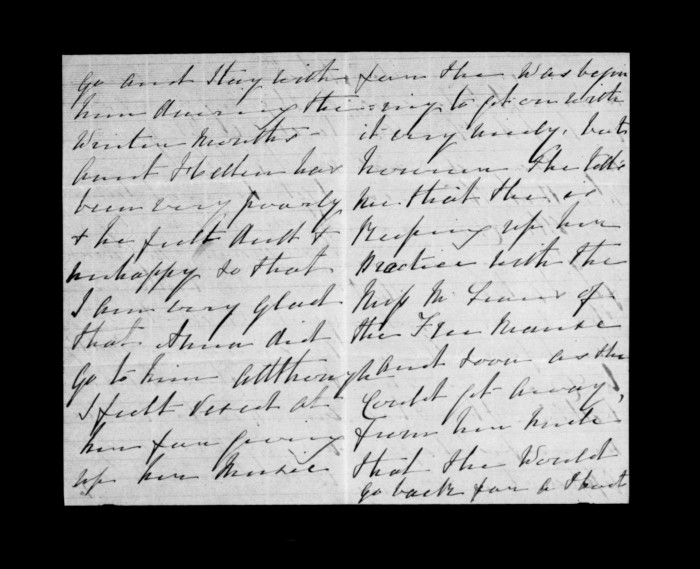 go and Stay with
him during the
Winter Months -
Aunt Hellen has
been very poorly
& he felt dull &
unhappy so that
I am very glad
that Anna did
go to him allthough
I felt vexed at
her for giving
up her Music
for she was begin
-ing to get on with
it very nicely, but
however she tells
me that she is
Keeping up her
practice with the
Miss M Leans of
the Free Manse
and soon as she
Could get away
from her Uncle
that she Would
go back for a Short